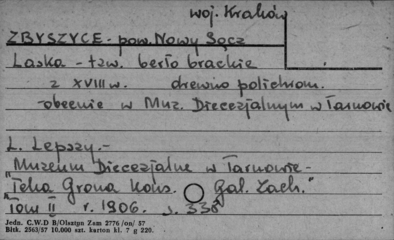 woj. Kraków
ZBYSZYCE - pow. Nowy Sącz
Laska - tzw. berło brackie
z XVIII w. drewno polichrom.
obecnie w Muz. Diecezjalnym w Tarnowie
L. Lepszy. -
Muzeum Diecezjalne w Tarnowie -
"Teka Grona Kons. Gal. Zach."
Tom II r. 1906. s. 338
Jedn. C.W.D B/Olsztyn Zam 2776/on/57
Błtk. 2563/57 10.000 szt. karton kl. 7 g 220.